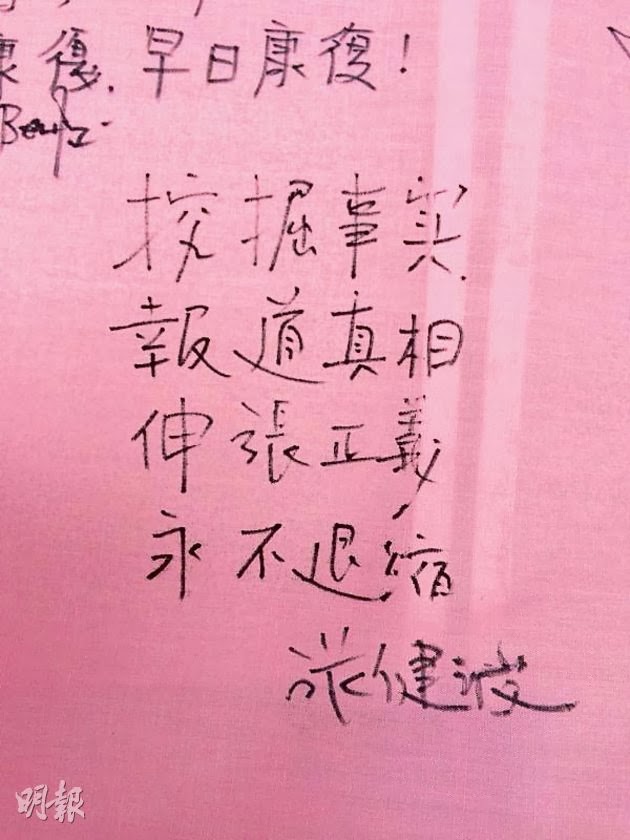 康復. 早日康復!
挖掘事实
報道真相
伸張正義
永不退縮
張健波
明報